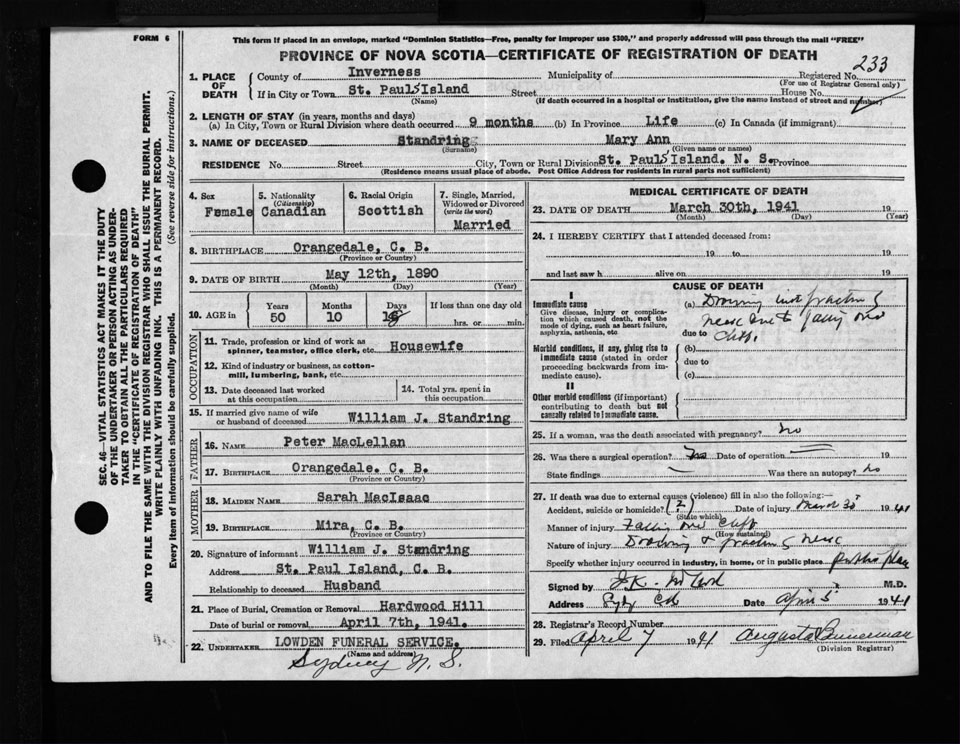 FORM 6
This form if placed in an envelope, marked "Dominion Statistics—Free, penalty for improper use $300," and properly addressed will pass through the mail "FREE"
PROVINCE OF NOVA SCOTIA—CERTIFICATE OF REGISTRATION OF DEATH
233
SEC. 46—VITAL STATISTICS ACT MAKES IT THE DUTY
OF THE UNDERTAKER OR PERSON ACTING AS UNDER-
TAKER TO OBTAIN ALL THE PARTICULARS REQUIRED
IN THE "CERTIFICATE OF REGISTRATION OF DEATH"
AND TO FILE THE SAME WITH THE DIVISION REGISTRAR WHO SHALL ISSUE THE BURIAL PERMIT.
WRITE PLAINLY WITH UNFADING INK. THIS IS A PERMANENT RECORD.
Every item of information should be carefully supplied. (See reverse side for instructions.)
1. PLACE OF DEATH
County of Inverness Municipality of Registered No.
(For use of Registrar General only)
If in City or Town St. Paul's Island Street House No.
(Name) (If death occurred in a hospital or institution, give the name instead of street and number)
2. LENGTH OF STAY (in years, months and days)
(a) In City, Town or Rural Division where death occurred 9 months (b) In Province Life (c) In Canada (if immigrant)
3. NAME OF DECEASED Standring Mary Ann
(Surname) (Given name or names)
RESIDENCE No. Street City, Town or Rural Division St. Paul's Island. N. S. Province
(Residence means usual place of abode. Post Office Address for residents in rural parts not sufficient)
4. Sex
Female
5. Nationality
(Citizenship)
Canadian
6. Racial Origin
Scottish
7. Single, Married,
Widowed or Divorced
(write the word)
Married
8. BIRTHPLACE Orangedale, C. B.
(Province or Country)
9. DATE OF BIRTH May 12th, 1890
(Month) (Day) (Year)
10. AGE in
Years Months Days If less than one day old
50 10 18 hrs. or min.
OCCUPATION
11. Trade, profession or kind of work as
spinner, teamster, office clerk, etc. Housewife
12. Kind of industry or business, as cotton-
mill, lumbering, bank, etc.
13. Date deceased last worked
at this occupation
14. Total yrs. spent in
this occupation
15. If married give name of wife
or husband of deceased William J. Standring
FATHER
16. NAME Peter MacLellan
17. BIRTHPLACE Orangedale. C. B.
(Province or Country)
MOTHER
18. MAIDEN NAME Sarah MacIsaac
19. BIRTHPLACE Mira, C. B.
(Province or Country)
20. Signature of informant William J. Standring
Address St. Paul Island, C. B.
Relationship to deceased Husband
21. Place of Burial, Cremation or Removal Hardwood Hill
Date of burial or removal April 7th, 1941.
22. UNDERTAKER LOWDEN FUNERAL SERVICE.
(Name and address)
Sydney N. S.
MEDICAL CERTIFICATE OF DEATH
23. DATE OF DEATH March 30th, 1941 19
(Month) (Day) (Year)
24. I HEREBY CERTIFY that I attended deceased from:
19 to 19
and last saw h alive on 19
CAUSE OF DEATH
I
Immediate cause
Give disease, injury or complica-
tion which caused death, not the
mode of dying, such as heart failure,
asphyxia, asthenia, etc
(a)
neck due to falling over
due to Cliff.
Morbid conditions, if any, giving rise to
immediate cause (stated in order
proceeding backwards from im-
mediate cause).
(b)
due to
(c)
II
Other morbid conditions (if important)
contributing to death but not
causally related to immediate cause.
25. If a woman, was the death associated with pregnancy? no
26. Was there a surgical operation? no Date of operation 19
State findings Was there an autopsy? no
27. If death was due to external causes (violence) fill in also the following:—
Accident, suicide or homicide? (?) Date of injury March 30 1941
(State which)
Manner of injury Falling over Cliff
(How sustained)
Nature of injury Drowning & fracture of neck
Specify whether injury occurred in industry, in home, or in public place public place
Signed by M.D.
Address Date April 5 1941
28. Registrar's Record Number
29. Filed April 7 1941 Augusta Bannerman
(Division Registrar)